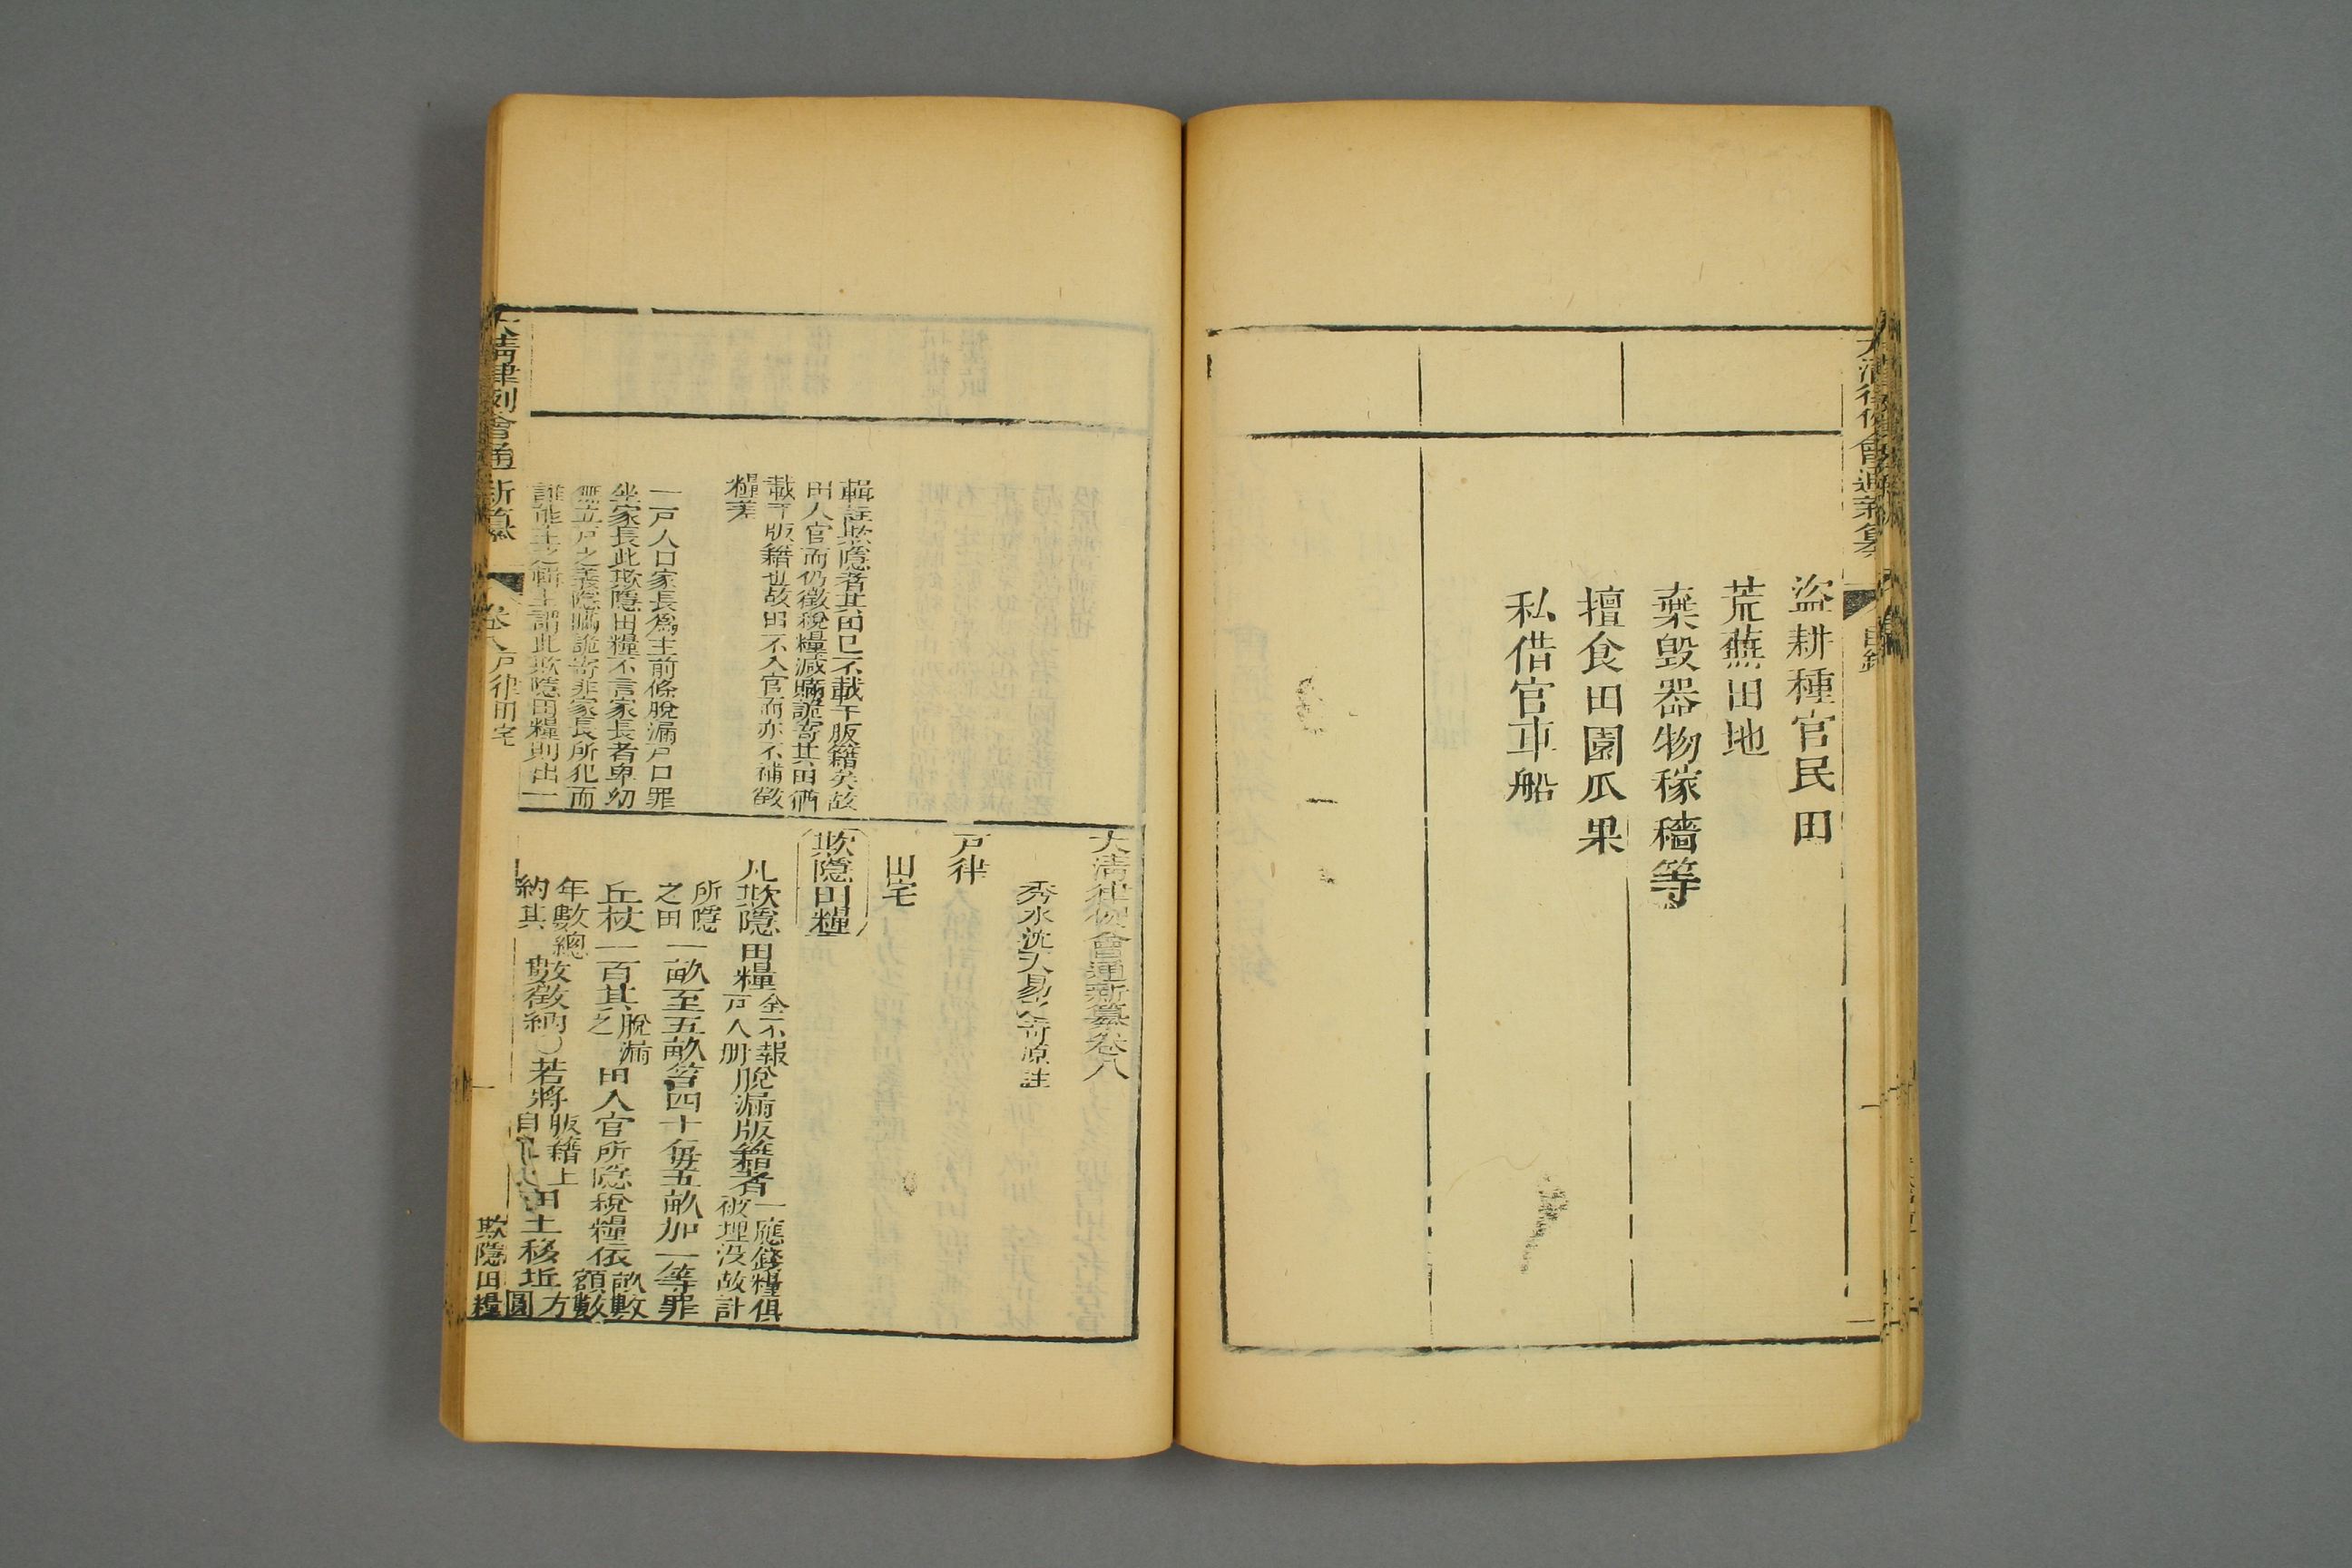 盜耕種官民田
荒蕪田地
棄毀器物稼穡等
擅食田園瓜果
私借官車船
輯註欺隱者其田巳不載于版籍矣故
田入官而仍徵稅糧減瞞詭寄其田猶
載于版籍也故田不入官而亦不補徵
糧差
一戸人口家長爲主前條脫漏戸口罪
坐家長此欺隱田糧不言家長者卑幼
無立戸之義隱瞞詭寄非家長所犯而
誰能主之輯主謂此欺隱田糧則出一
大清律例會通新纂卷八
秀水沈天易之奇原註
戸律
田宅
欺隱田糧
凡欺隱田糧全不報戸入册脫漏版籍者一應錢糧俱被埋沒故計
所隱之田一畝至五畝笞四十每五畝加一等罪
止杖一百其脫漏之田入官所隱稅糧依畝數額數
年數總約其數徵納○若將版籍上自己田土移坵方圓
大清律例會通新纂
卷八戸律田宅
一
欺隱田糧